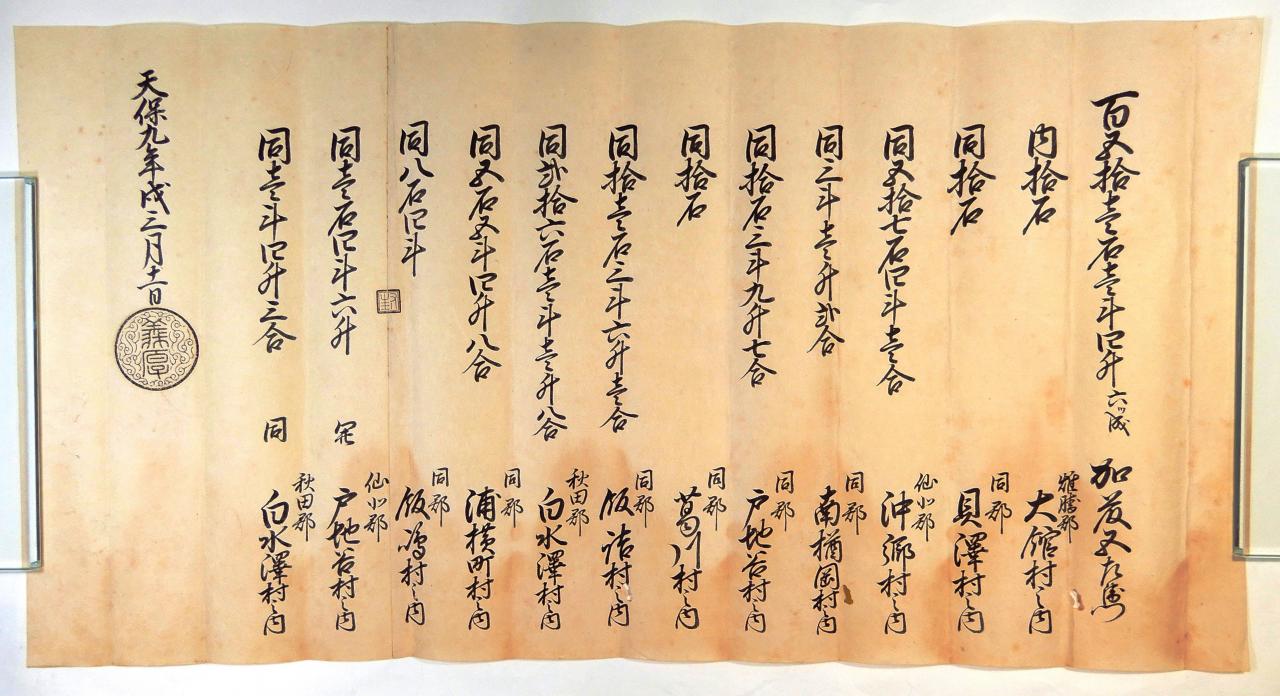 百五拾壱石壱斗四升 六ツ成 加茂又左衛門
内拾石 雄勝郡 大館村之内
同拾石 同郡 貝澤村之内
同五拾七石四斗壱合 仙北郡 沖郷村之内
同三斗壱升弐合 同郡 南楢岡村之内
同拾石三斗九升七合 同郡 戸地谷村之内
同拾石 同郡 葛川村之内
同拾壱石三斗六升壱合 同郡 飯詰村之内
同弐拾六石壱斗壱升八合 秋田郡 白水澤村之内
同五石五斗四升八合 同郡 浦横町村之内
同八石四斗 同郡 飯嶋村之内
同壱石四斗六升 仙北郡 戸地谷村之内
同壱斗四升三合 同 秋田郡 白水澤村之内
天保九年戌三月十一日
義厚